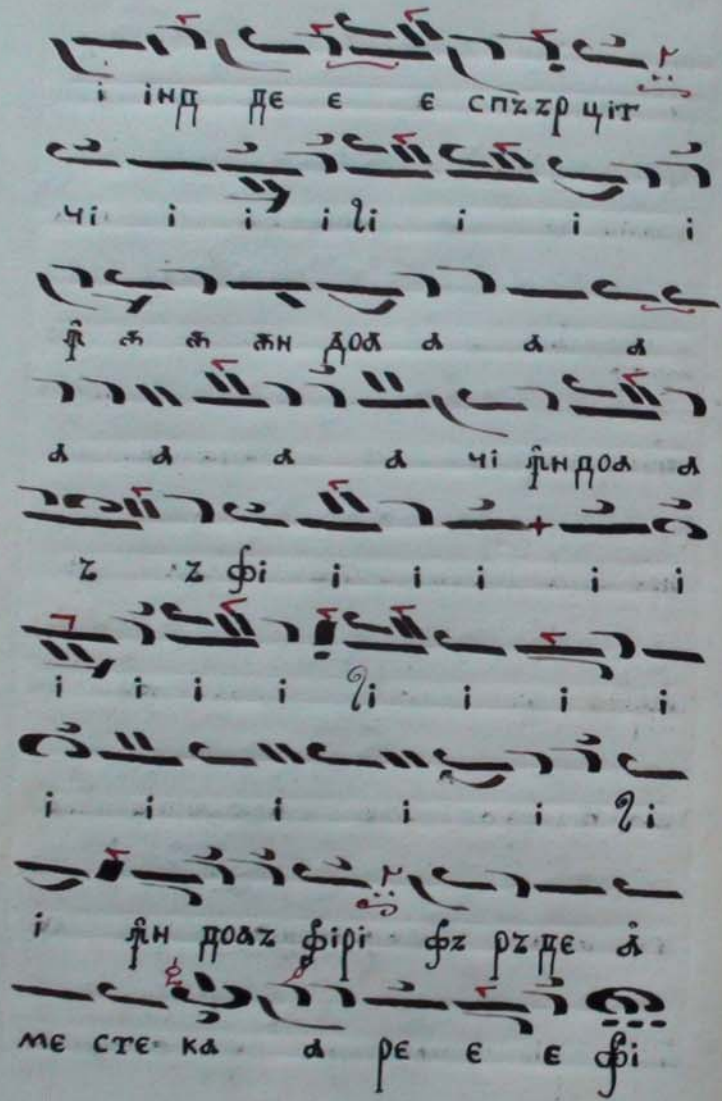 і інд де е е спъърціт
чі і і і ꙋі і і і
ꙟ ѫ ѫ ѫн доа а а а
а а а а чі ꙟн доа а
ъ ъ фі і і і і і
і і і і ꙋі і і і
і і і і і ꙋі
і ꙟн доаъ фірі фъ ръ де а
ме сте ка а ре е е фі